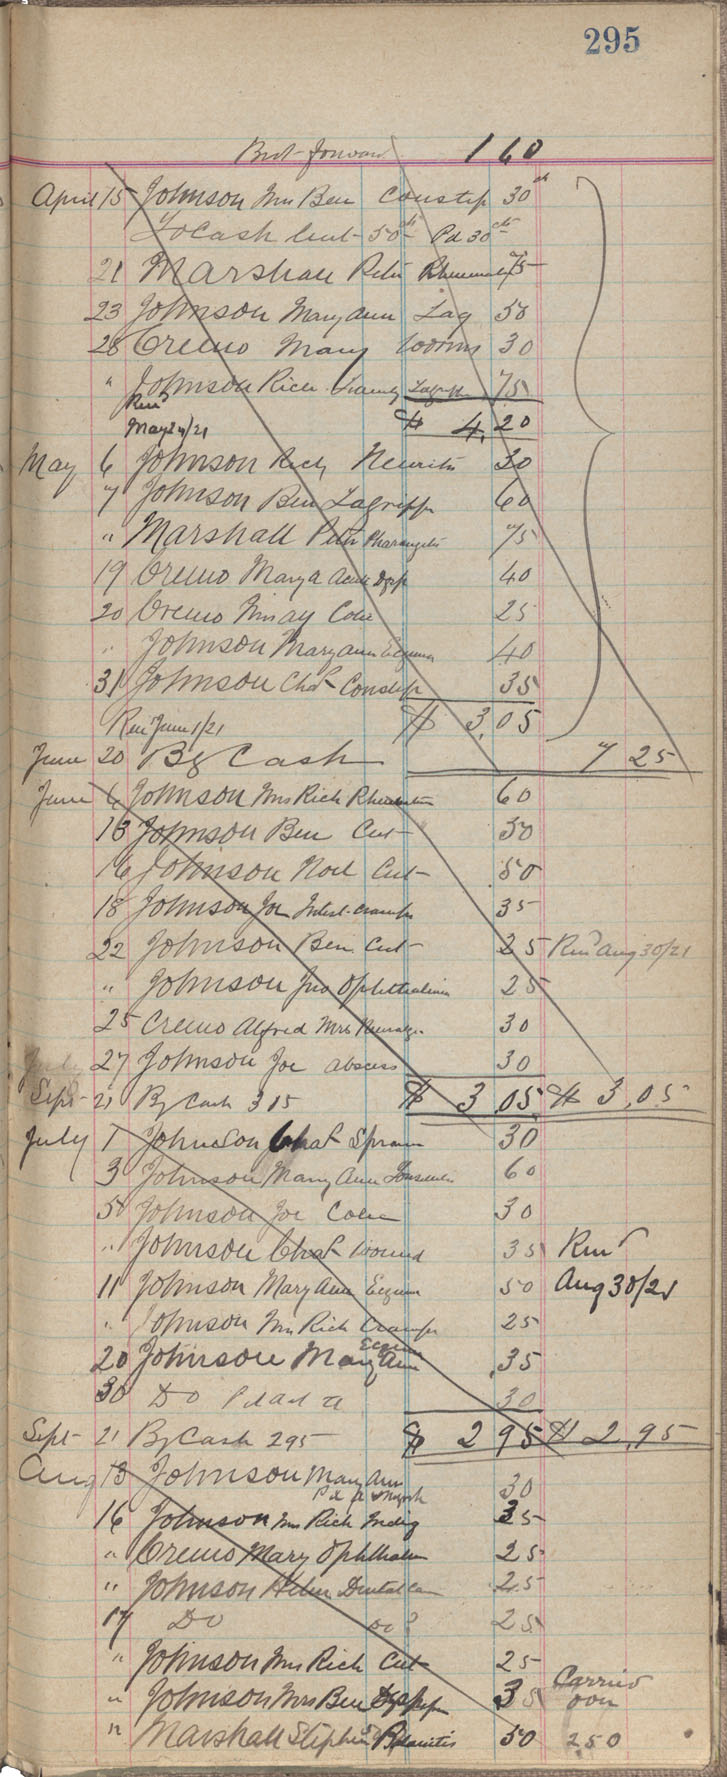 295
Brot forward 1 60
April 15 Johnson Mrs Ben Constip 30
To Cash Cut 50 cts Pd 30 cts
21 Marshall Peter Rheumat 75
23 Johnson Mary Ann Lag 50
28 Cremo Mary Worms 30
" Johnson Rich Family Lagripp 75
Ren
May 24/21 $ 4,20
May 6 Johnson Rich Neuritis 30
7 Johnson Ben Lagrippe 60
" Marshall Peter Pharangitis 75
19 Cremo Mary a Acute Dysp 40
20 Cremo 25
" Johnson Mary Ann Eczema 40
31 Johnson Chas Constip 35
Ren June 1/21 $ 3,05
June 20 By Cash 7 25
June 6 Johnson Mrs Rich 60
13 Johnson Ben Cut 30
16 Johnson Noel Cut 50
18 Johnson Joe Intest-cramps 35
22 Johnson Ben Cut 25 Ren'd Aug 30/21
" Johnson Jno Ophthalmia 25
25 Cremo Alfred Mrs 30
July 27 Johnson Joe abscess 30
Sept 21 By Cash 3 05 $ 3,05 $ 3,05
July 1 Johnson Chas Sprain 30
3 Johnson Mary Ann Tonsilitis 60
5 Johnson Joe 30
" Johnson Chas Wound 35 Ren'd
11 Johnson Mary Ann Eczema 50 Aug 30/21
" Johnson Mrs Rich Cramps 25
20 Johnson Mary Ann Eczema 35
30 Do 30
Sept 21 By Cash 2 95 $ 2 95 $ 2,95
Aug 13 Johnson Mary Ann
30
16 Johnson Mrs Rich Indig 35
" Cremo Mary Ophthalm 25
" Johnson 25
17 Do Do 25
" Johnson Mrs Rich Cut 25
" Johnson Mrs Ben 35 Carried over
" Marshall Stephen 50 2 50